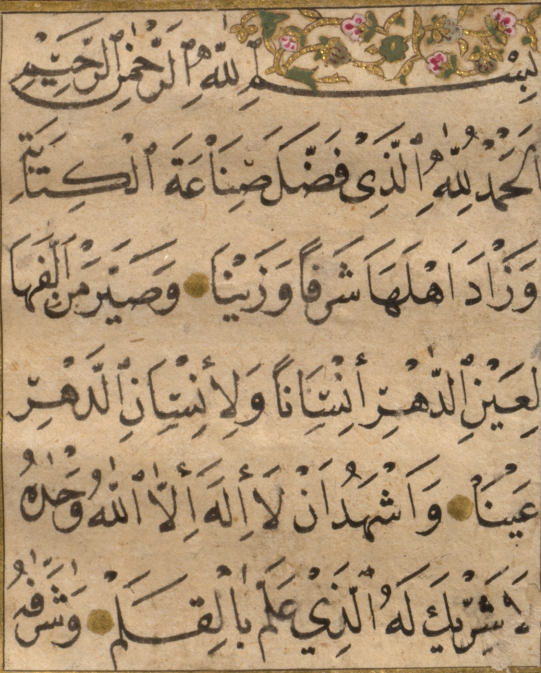 بِسْمِ ٱللّٰهِ ٱلرَّحْمٰنِ ٱلرَّحِيْمِ
اَلْحَمْدُ لِلّٰهِ ٱلَّذِىْ فَضَّلَ صِنَاعَةَ ٱلْكِتَابَةِ
وَزَادَ اَهْلَهَا شَرَفًا وَزَيْنًا وَصَيَّرَ مَنْ اَلِفَهَا
لِعَيْنِ ٱلدَّهْرِ أنْسَانًا وَلِأنْسَانِ ٱلدَّهْرِ
عَيْنَا وَاَشْهَدُ اَنْ لَا أِلٰهَ أِلَّا ٱللّٰهُ وَحْدَهُ
لَا شَرِيْكَ لَهُ ٱلَّذِيْ عَلَّمَ بِالْقَلَمْ وَشَرَّفَهُ